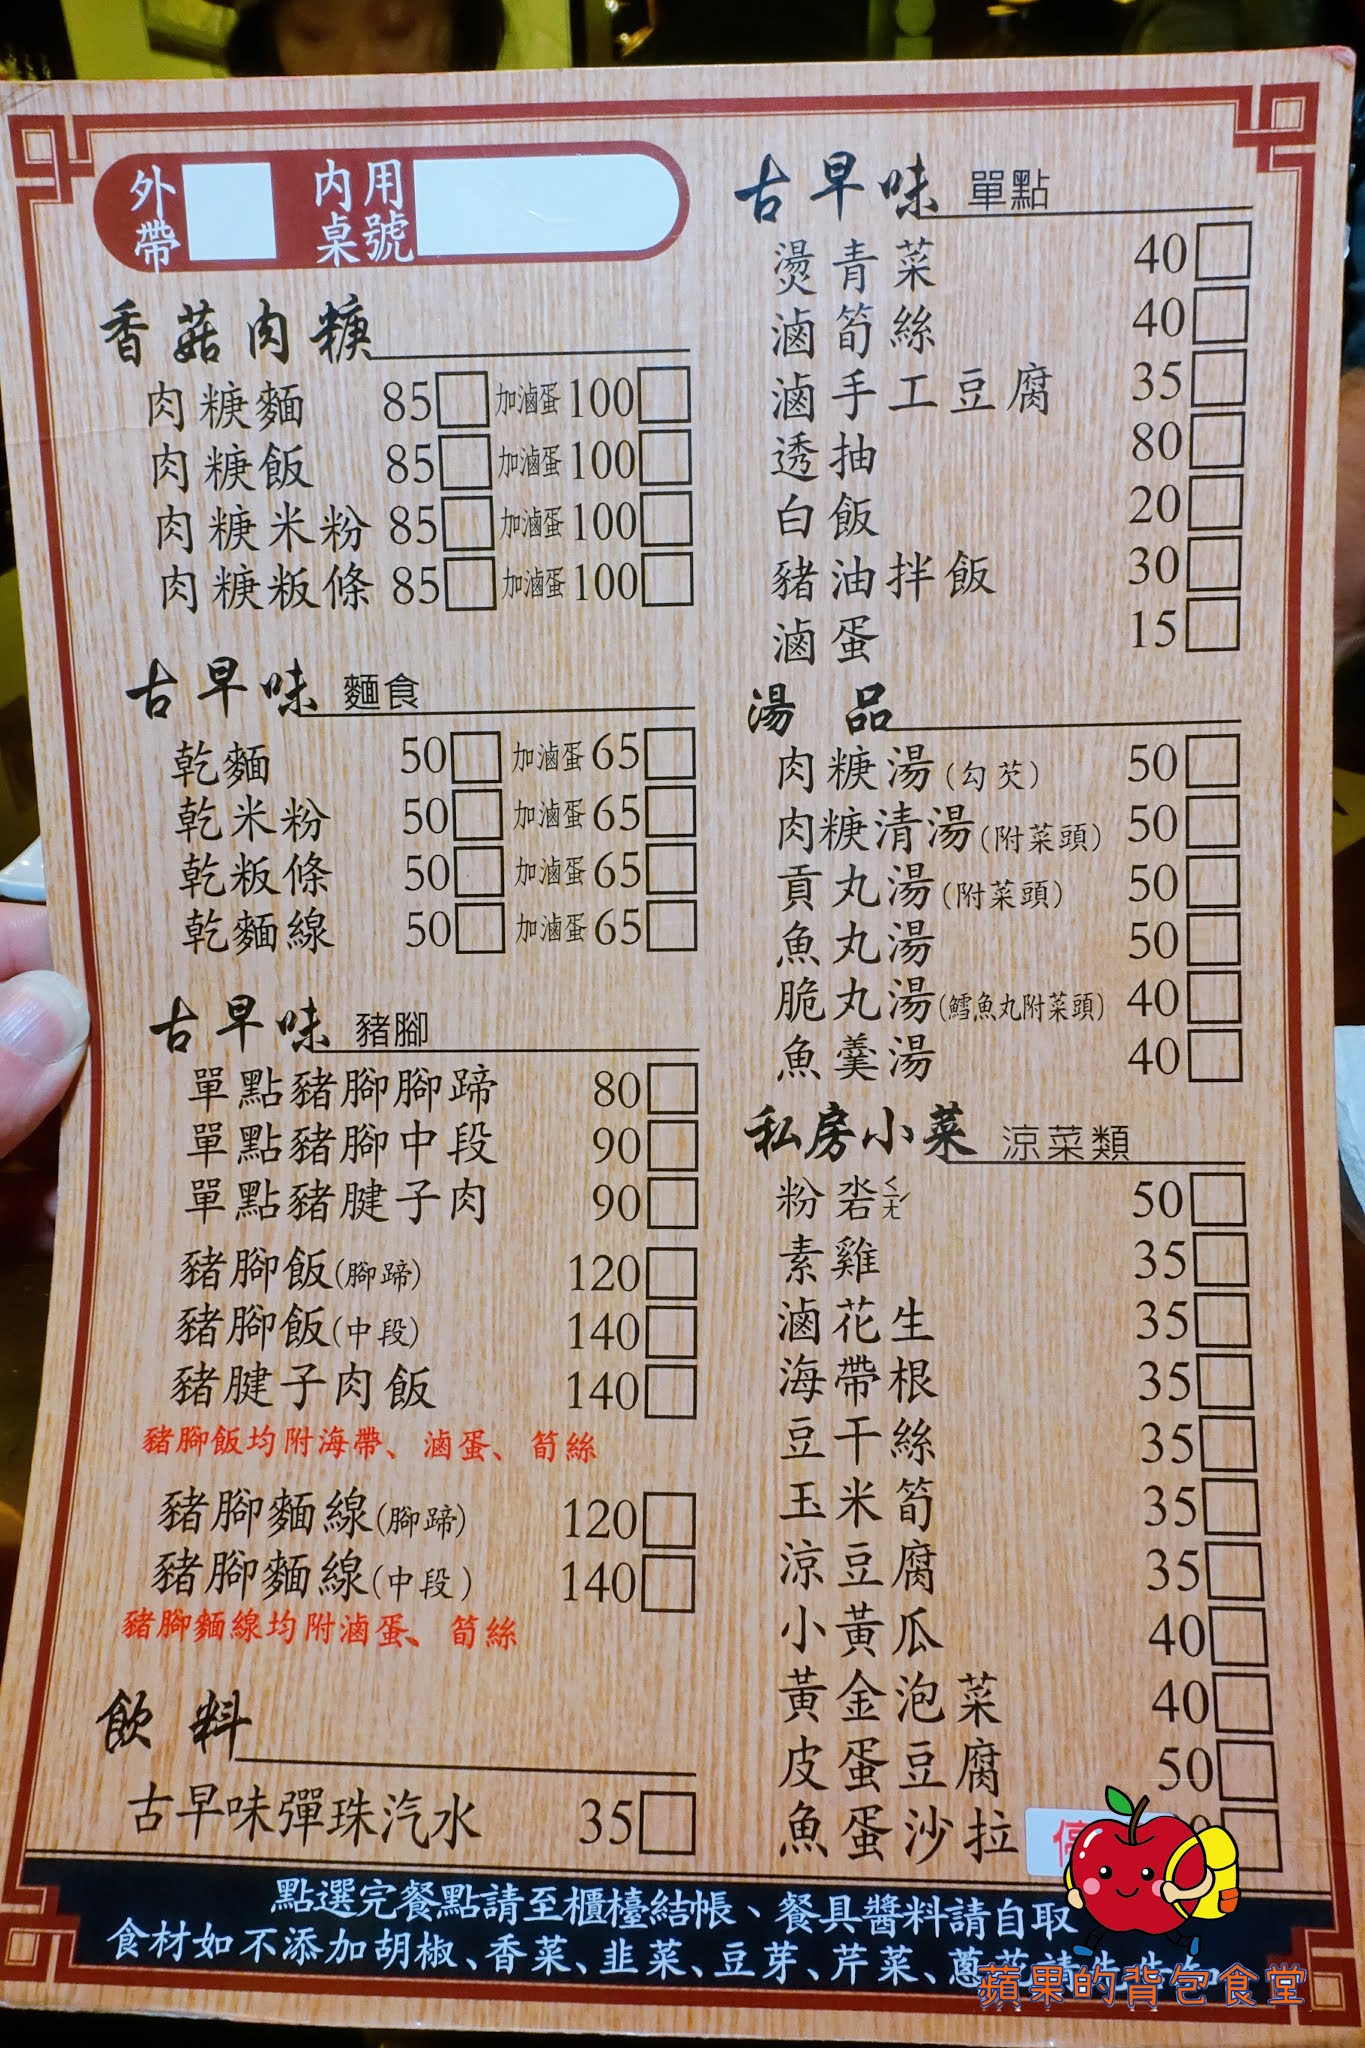 外帶
內用桌號
香菇肉焿
肉焿麵 85 加滷蛋 100
肉焿飯 85 加滷蛋 100
肉焿米粉 85 加滷蛋 100
肉焿粄條 85 加滷蛋 100
古早味 麵食
乾麵 50 加滷蛋 65
乾米粉 50 加滷蛋 65
乾粄條 50 加滷蛋 65
乾麵線 50 加滷蛋 65
古早味 豬腳
單點豬腳腳蹄 80
單點豬腳中段 90
單點豬腱子肉 90
豬腳飯(腳蹄) 120
豬腳飯(中段) 140
豬腱子肉飯 140
豬腳飯均附海帶、滷蛋、筍絲
豬腳麵線(腳蹄) 120
豬腳麵線(中段) 140
豬腳麵線均附滷蛋、筍絲
飲料
古早味彈珠汽水 35
古早味 單點
燙青菜 40
滷筍絲 40
滷手工豆腐 35
透抽 80
白飯 20
豬油拌飯 30
滷蛋 15
湯品
肉焿湯(勾芡) 50
肉焿清湯(附菜頭) 50
貢丸湯(附菜頭) 50
魚丸湯 50
脆丸湯(鱈魚丸附菜頭) 40
魚羹湯 40
私房小菜 涼菜類
粉峇ㄑㄧㄤˊ 50
素雞 35
滷花生 35
海帶根 35
豆干絲 35
玉米筍 35
涼豆腐 35
小黃瓜 40
黃金泡菜 40
皮蛋豆腐 50
魚蛋沙拉
點選完餐點請至櫃檯結帳、餐具醬料請自取
食材如不添加胡椒、香菜、韭菜、豆芽、芹菜、蔥花請先告知
蘋果的背包食堂